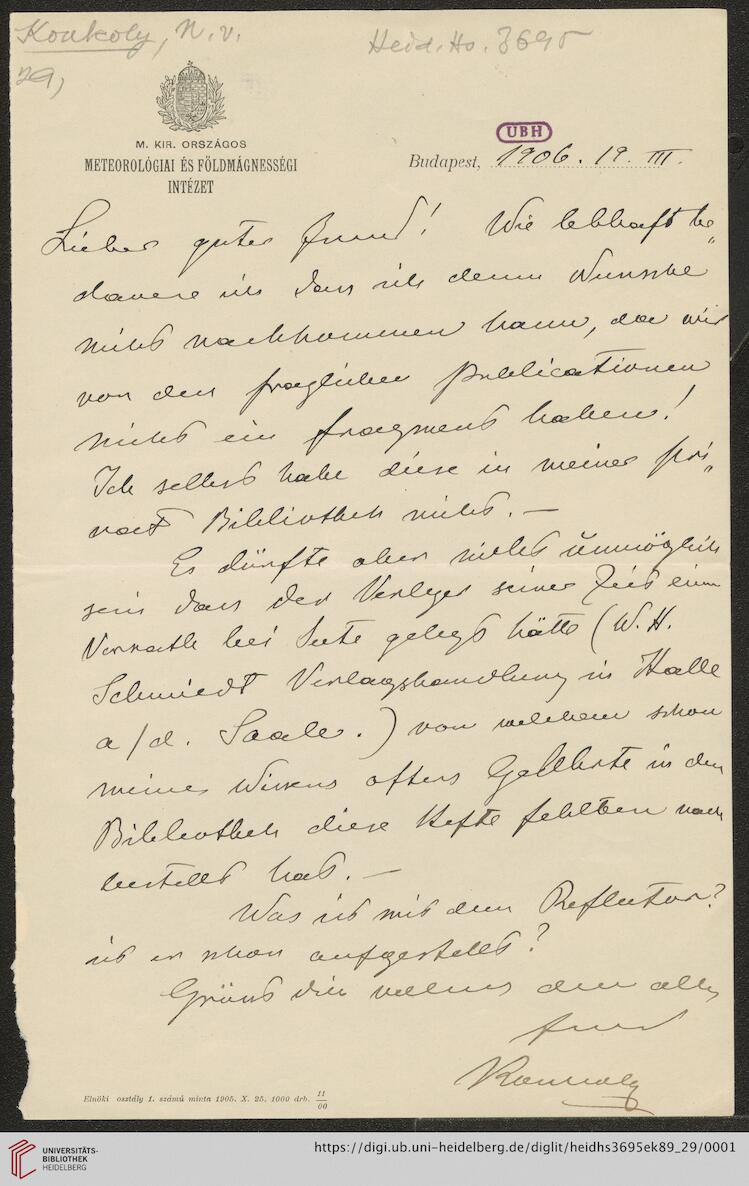 Konkoly, N. v.
Heid. Hs. 3695
29,
UBH
M. KIR. ORSZÁGOS
METEOROLÓGIAI ÉS FÖLDMÁGNESSÉGI
INTÉZET
Budapest, 1906. 19. III.
Lieber guter Freund! Wie lebhaft be„
dauere ich dass ich deinem Wunsche
nicht nachkommen kann, da wir
von den fraglichen Publicationen
nicht ein Fragment haben!
Ich selbst habe diese in meiner pri„
vat Bibliothek nicht. —
Es dürfte aber nicht unmöglich
sein dass der Verleger seiner Zeit einen
Vorrath bei Seite gelegt hätte (W. H.
Schmiedt Verlagshandlung in Halle
a/d. Saale.) von welchem schon
meines Wissens öfters Gelehrte in deren
Bibliothek diese Hefte fehlten nach
bestellt hat. —
Was ist mit dem Reflector?
ist er schon aufgestellt?
Grüsst dich vielmals dein alter
Freund
Konkoly
Elnöki osztály 1. számú minta 1905. X. 25. 1000 drb. 11/00
UNIVERSITÄTS-
BIBLIOTHEK
HEIDELBERG
https://digi.ub.uni-heidelberg.de/diglit/heidhs3695ek89_29/0001